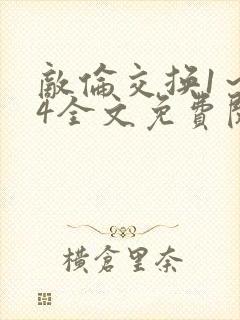 敵倫交换1～
4全文免費閱
橫倉里奈